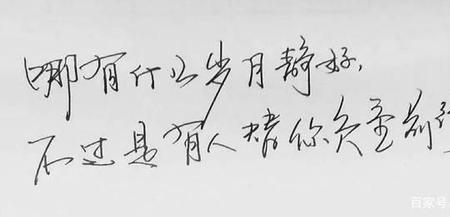 哪有什么岁月静好,
不过是有人替你负重前
百家号